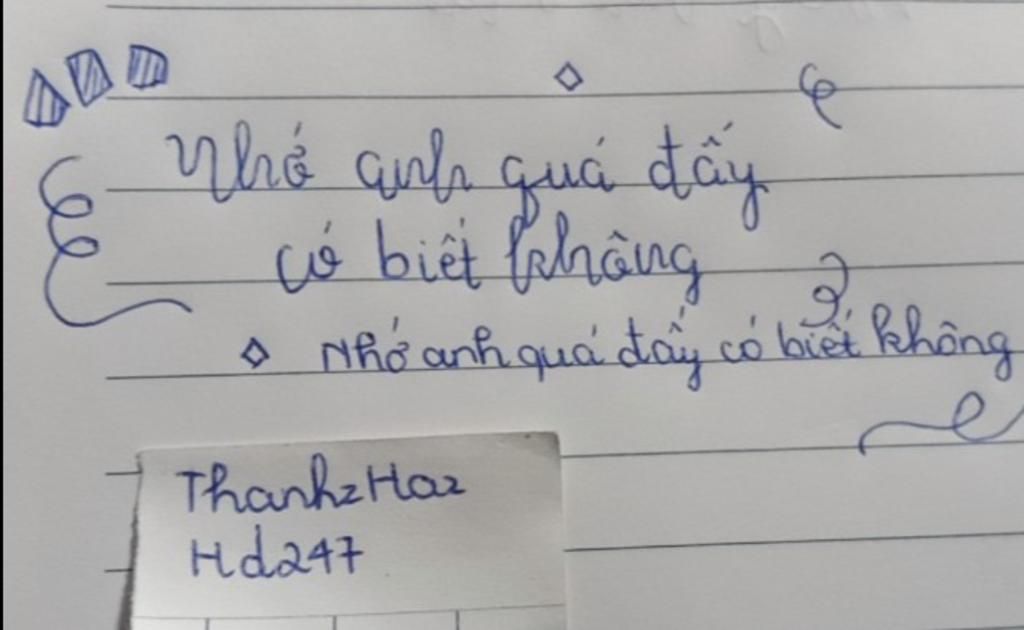 Nhớ anh quá đấy
có biết không
Nhớ anh quá đấy có biết không
ThanhzHaz
Hd247